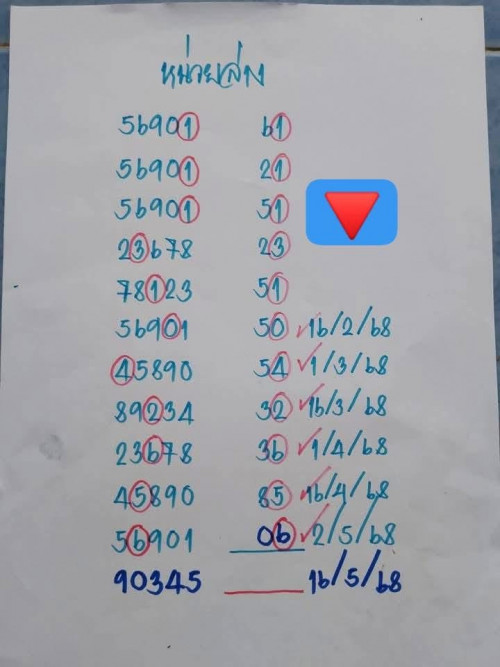 หน่วยล่าง
56901 61
56901 21
56901 51
23678 23
78123 51
56901 50 ✓16/2/68
45890 54 ✓1/3/68
89234 32 ✓16/3/68
23678 36 ✓1/4/68
45890 85 ✓16/4/68
56901 06 ✓2/5/68
90345 16/5/68